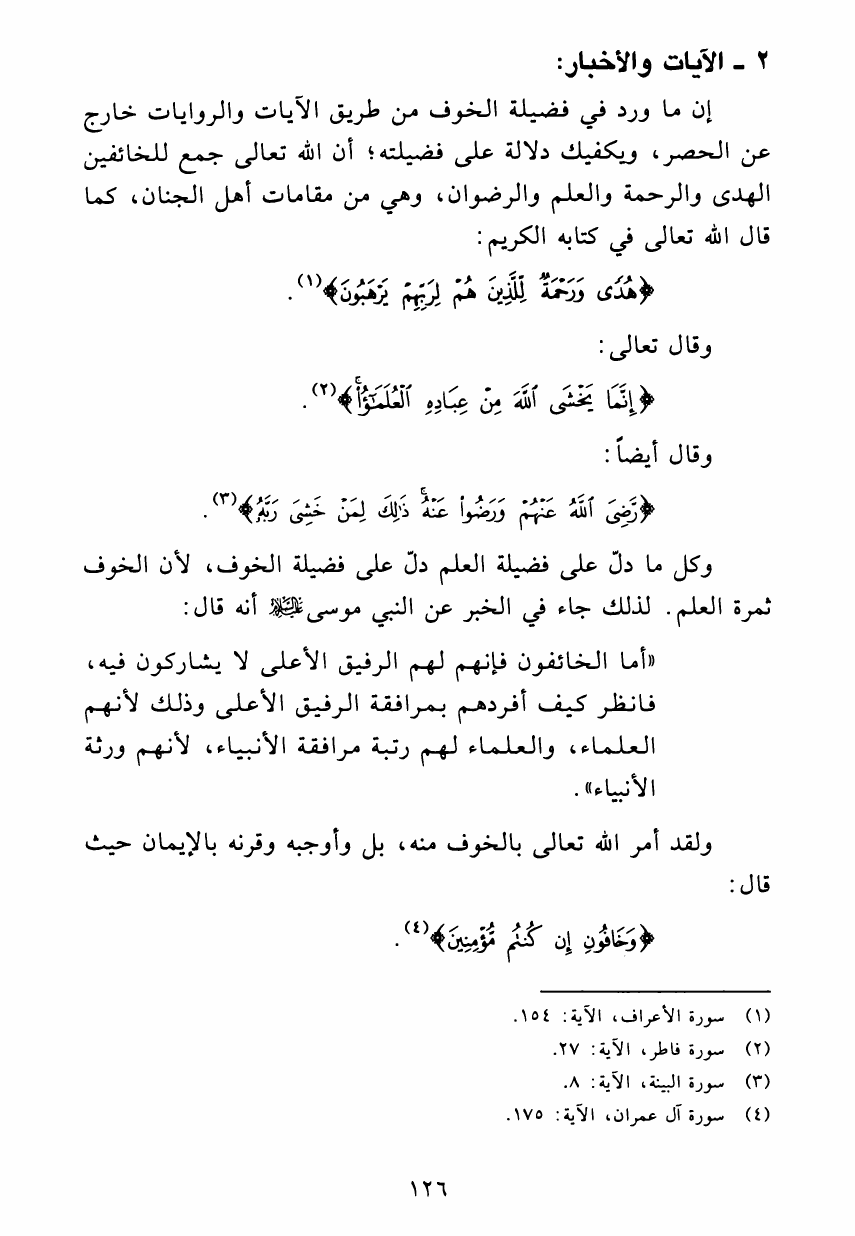 ٢ - الآيات والأخبار:
إن ما ورد في فضيلة الخوف من طريق الآيات والروايات خارج
عن الحصر، ويكفيك دلالة على فضيلته؛ أن الله تعالى جمع للخائفين
الهدى والرحمة والعلم والرضوان، وهي من مقامات أهل الجنان، كما
قال الله تعالى في كتابه الكريم:
﴿هُدًى وَرَحْمَةٌ لِّلَّذِينَ هُمْ لِرَبِّهِمْ يَرْهَبُونَ﴾(١).
وقال تعالى:
﴿إِنَّمَا يَخْشَى ٱللَّهَ مِنْ عِبَادِهِ ٱلْعُلَمَٰٓؤُا۟ۗ﴾(٢).
وقال أيضاً:
﴿رَّضِىَ ٱللَّهُ عَنْهُمْ وَرَضُوا۟ عَنْهُۚ ذَٰلِكَ لِمَنْ خَشِىَ رَبَّهُۥ﴾(٣).
وكل ما دلّ على فضيلة العلم دلّ على فضيلة الخوف، لأن الخوف
ثمرة العلم. لذلك جاء في الخبر عن النبي موسى عليه السلام أنه قال:
«أما الخائفون فإنهم لهم الرفيق الأعلى لا يشاركون فيه،
فانظر كيف أفردهم بمرافقة الرفيق الأعلى وذلك لأنهم
العلماء، والعلماء لهم رتبة مرافقة الأنبياء، لأنهم ورثة
الأنبياء».
ولقد أمر الله تعالى بالخوف منه، بل وأوجبه وقرنه بالإيمان حيث
قال:
﴿وَخَافُونِ إِن كُنتُم مُّؤْمِنِينَ﴾(٤).
(١) سورة الأعراف، الآية: ١٥٤.
(٢) سورة فاطر، الآية: ٢٧.
(٣) سورة البينة، الآية: ٨.
(٤) سورة آل عمران، الآية: ١٧٥.
١٢٦